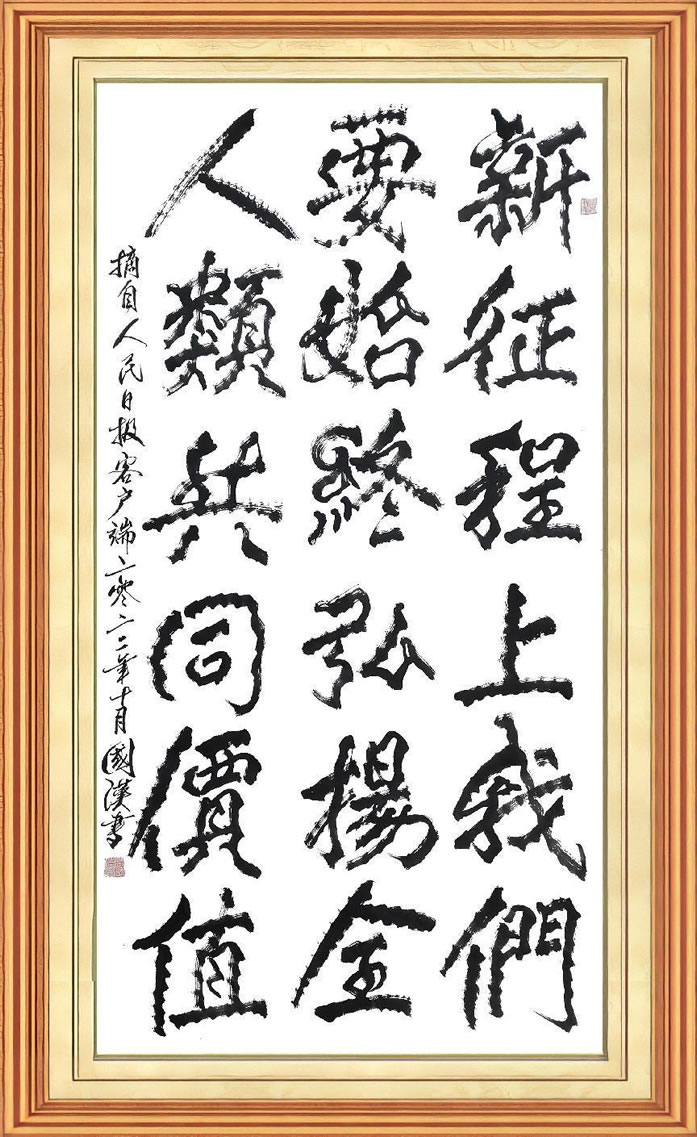 新征程上我們
要始終弘揚全
人類共同價值
摘自人民日报客户端二零二二年十月國漢書